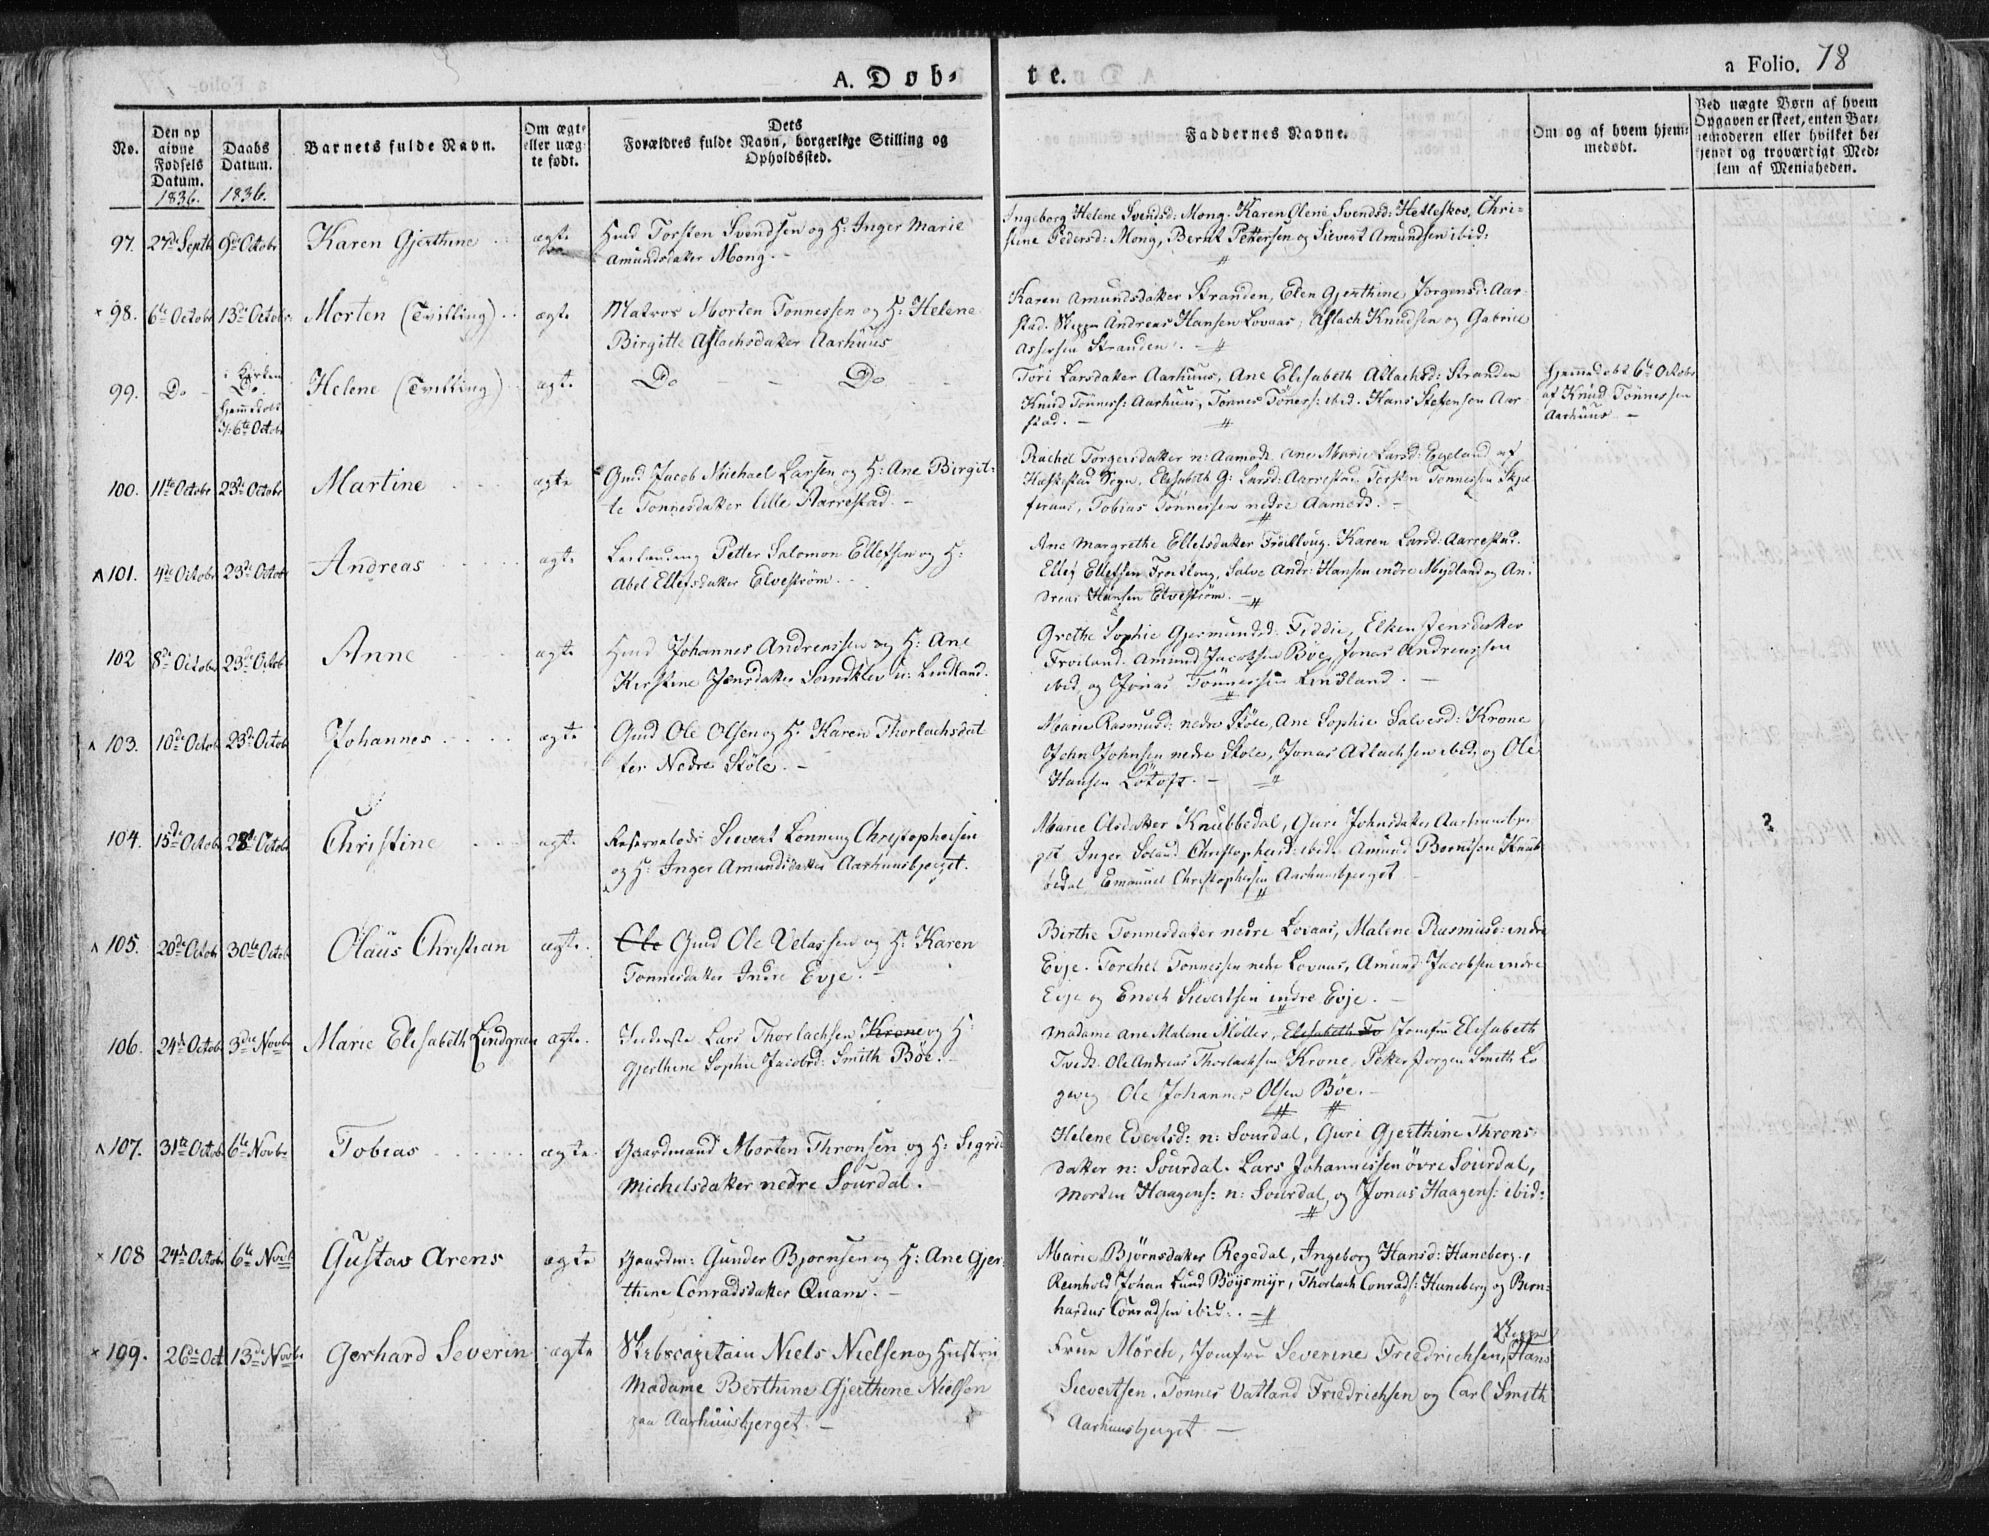 A. Døb-te.
a Folio. 78
No.
Den op
givne
Fødsels
Datum.
1836.
Daabs
Datum.
1836.
Barnets fulde Navn.
Om ægte
eller uæg-
te født.
Dets
Forældres fulde Navn, borgerlige Stilling og
Opholdssted.
Faddernes Navne.
Om og af hvem hjem-
medøbt.
Ved uægte Børn af hvem
Opgaven er skeet, enten Bar-
nemoderen eller hvilket be-
kjendt og troværdigt Med-
lem af Menigheden.
97. 27de Septb 9de Octobr Karen Gjerthine ægte
Huusmd Torsten Svendsen og H: Inger Marie
Amundsdatter Mong.
Ingeborg Helene Svendsd: Mong. Karen Olene Svendsd: Hetleskov, Chri-
stine Pedersd: Mong, Bernt Pettersen og Sievert Amundsen ibid:
× 98. 6te Octobr 13de Octobr Morten (Tvilling) ægte
Matros Morten Tønnessen og H: Helene
Birgitte Aslachsdatter Aarhuus
Karen Amundsdatter Stranden, Elen Gjerthine Jørgensd: Aar-
stad. Skipper Andreas Hansen Lovaas, Aslach Knudsen og Gabriel
Assersen Stranden.
99. Do i Kirken
Do
hjemmedøbt
d: 6te Octobr
Helene (Tvilling) ægte
Do - - Do -
Tøri Larsdatter Aarhuus, Ane Elisabeth Aslachsd: Stranden
Knud Tønness: Aarhuus, Tønnes Tønnes: ibid. Hans Steffensen Aar-
stad.
hjemmedøbt 6te Octobr
af Knud Tønnessen
Aarhuus
100. 11te Octobr 23de Octobr Martine ægte
Gmd Jacob Michael Larsen og H: Ane Birgit-
te Tønnesdatter lille Aarrestad.
Rachel Torgersdatter n: Aamodt, Ane Marie Larsd: Egeland af
Heskestad Sogn. Elisabeth G: Larsd: Aarrestad. Torsten Tønnessen Skje-
feraas, Tobias Tønnessen nedre Aamodt.
^ 101. 4de Octobr 23de Octobr Andreas ægte
Petter Salomon Ellefsen og H:
Abel Ellefsdatter Elvestrøm.
Ane Margrethe Ellefsdatter Frøitlong. Karen Larsd: Aarrestad.
Ellef Ellefsen Frøitlong, Salve Andr: Hansen indre Mydland og An-
dreas Hansen Elvestrøm.
102 8de Octobr 23de Octob Anne ægte
Huusmd Johannes Andreassen og H: Ane
Kirstine Jensdatter Sandklev u: Lindland.
Grethe Sophie Gjermundsd: Fiddie, Elken Jensdatter
Frøiland. Amund Jacobsen Bøe, Jonas Andreassen
ibid, og Jonas Tønnessen Lindland.
^ 103. 10de Octob 23de Octob Johannes ægte
Gmd Ole Olsen og H: Karen Thorlachsdat-
ter Nedre Støle.
Marie Rasmusd: nedre Støle, Ane Sophie Salvesd: Krone
John Johnsen nedre Støle, Jonas Aslachsen ibid og Ole
Hansen Løtoft.
104. 15de Octob 28de Octob Christine ægte
Reservelods Sievert Lonneng Christophersen
og H: Inger Amundsdatter Aarhuusbjerget.
Marie Olsdatter Knubbedal, Guri Johnsdatter, Aarhuusbjer-
get, Inger Soland Christophersd: ibid. Amund Berntsen Knub-
bedal Emanuel Christophersen Aarhuusbjerget
?
^ 105. 20de Octob 30te Octob Olaus Christian ægte.
Ole Gmd Ole Velassen og H: Karen
Tønnesdatter Indre Evje.
Birthe Tønnesdatter nedre Lovaas, Malene Rasmusd: indre
Evje. Torchel Tønnessen nedre Lovaas, Amund Jacobsen indre
Evje og Enoch Sievertsen indre Evje.
106. 24de Octob 3die Novbr Marie Elisabeth Lindgreen ægte.
Inderste Lars Thorlachsen Krone og H:
Gjerthine Sophie Jacobsd: Smith Bøe.
Madame Ane Malene Møller, Elisabeth To Jomfru Elisabeth
Tvedt. Ole Andreas Thorlachsen Krone, Petter Jørgen Smith Lo-
gevig Ole Johannes Olsen Bøe.
^ 107. 31te Octob 6te Novbr Tobias ægte
Gaardmand Morten Thronsen og H: Sigri
Michelsdatter nedre Sourdal.
Helene Evertsd: n: Sourdal, Guri Gjerthine Throns-
datter n: Sourdal. Lars Johannessen øvre Sourdal,
Morten Haagens: n: Sourdal, og Jonas Haagens: ibid:
× 108 24de Octobr 6te Novb Gustav Arens ægte
Gaardm: Gunder Bjørnsen og H: Ane Gjer-
thine Conradsdatter Quam.
Marie Bjørnsdatter Regedal, Ingeborg Hansd: Haneberg.,
Reinhold Johan Lund Bøysmyr, Thorlach Conrads: Haneberg og Bern-
hardus Conradsen ibid:.
× 109. 26de Oct 13de Novbr Gerhard Severin ægte
Skibscapitain Niels Nielsen og Hustru
Madame Berthine Gjerthine Nielsen
paa Aarhuusbjerget.
Frue Mörch, Jomfru Severine Friedrichsen, Skipper Hans
Sievertsen, Tønnes Vatland Friedrichsen og Carl Smith
Aarhuusbjerget